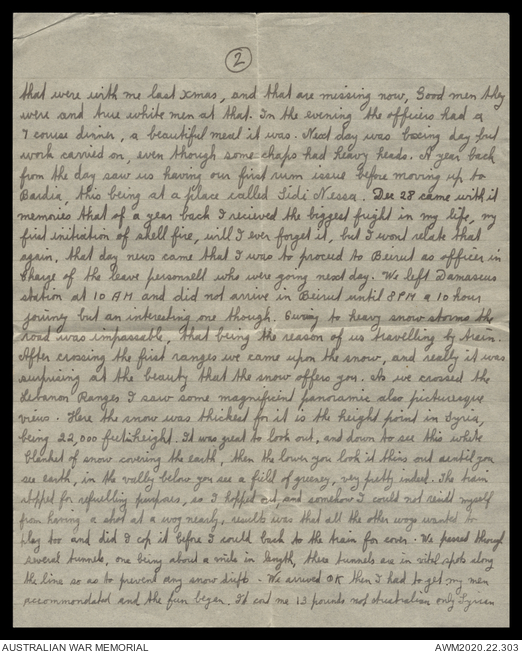 2
that were with me last xmas, and that are missing now, Good men they
were and true white men at that. In the evening the officers had a
7 course dinner, a beautiful meal it was. Next day was boxing day but
work carried on, even though some chaps had heavy heads. A year back
from the day saw us having our first rum issue before moving up to
Bardia, this being at a place called Sidi Nessa. Dec 28 came with it
memories that of a year back I recieved the biggest fright in my life, my
first initiation of shell fire, will I ever forget it, but I wont relate that
again, that day news came that I was to proceed to Beirut as officer in
charge of the leave personell who were going next day. We left Damascus
station at 10 AM and did not arrive in Beirut until 8PM a 10 hour
journey but an interesting one though. Owing to heavy snow storms the
road was impassable, that being the reason of us travelling by train.
After crossing the first ranges we came upon the snow, and really it was
surprising at the beauty that the snow offers you. As we crossed the
Lebanon Ranges I saw some magnificent panoramic also picturesque
views. Here the snow was thickest for it is the height point in Syria,
being 22,000 feet height. It was great to look out, and down to see this white
blanket of snow covering the earth, then the lower you look it thins out until you
see earth, in the valley below you see a field of greenery, very pretty indeed. The train
stopped for refuelling purposes, so I hopped out, and somehow I could not resist myself
from having a shot at a wog nearby, results was that all the other wogs wanted to
play too and did I cop it before I could back to the train for cover. We passed through
several tunnels, one being about a mile in length, these tunnels are in vital spots along
the line so as to prevent any snow drifts. We arrived OK then I had to get my men
accommodated and the fun began. It cost me 13 pounds not Australian only Syrian
AUSTRALIAN WAR MEMORIAL
AWM2020.22.303